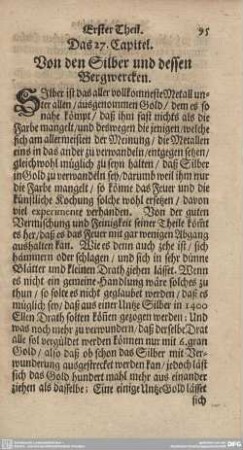 Erster Theil. 95
Das 27. Capitel.
Von den Silber und dessen
Bergwercken.
Silber ist das aller vollkomneste Metall un-
ter allen / ausgenommen Gold / dem es so
nahe kömpt / daß ihm fast nichts als die
Farbe mangelt / und deswegen die jenigen / welche
sich am allermeisten der Meinung / die Metallen
eins in das ander zu verwandeln / entgegen setzen /
gleichwohl müglich zu seyn halten / daß Silber
in Gold zu verwandeln sey / darumb weil ihm nur
die Farbe mangelt / so könne das Feuer und die
künstliche Kochung solche wohl ersetzen / davon
viel experimente verhanden. Von der guten
Vermischung und Feinigkeit seiner Theile kömt
es her / daß es das Feuer mit gar wenigen Abgang
aushalten kan. Wie es denn auch zehe ist / sich
hämmern oder schlagen / und sich in sehr dünne
Blätter und kleinen Drath ziehen lässet. Wenn
es nicht ein gemeine Handlung wäre solches zu
thun / so solte es nicht geglaubet werden / daß es
müglich sey / daß aus einer Untze Silber in 1400
Ellen Drath solten können gezogen werden: Und
was noch mehr zu verwundern / daß derselbe Drat
alle sol vergüldet werden können nur mit 6. gran
Gold / also daß ob schon das Silber mit Ver-
wunderung ausgestrecket werden kan / jedoch lässt
sich das Gold hundert mahl mehr aus einander
ziehen als dasselbe: Eine einige Untze Gold lässet
sich